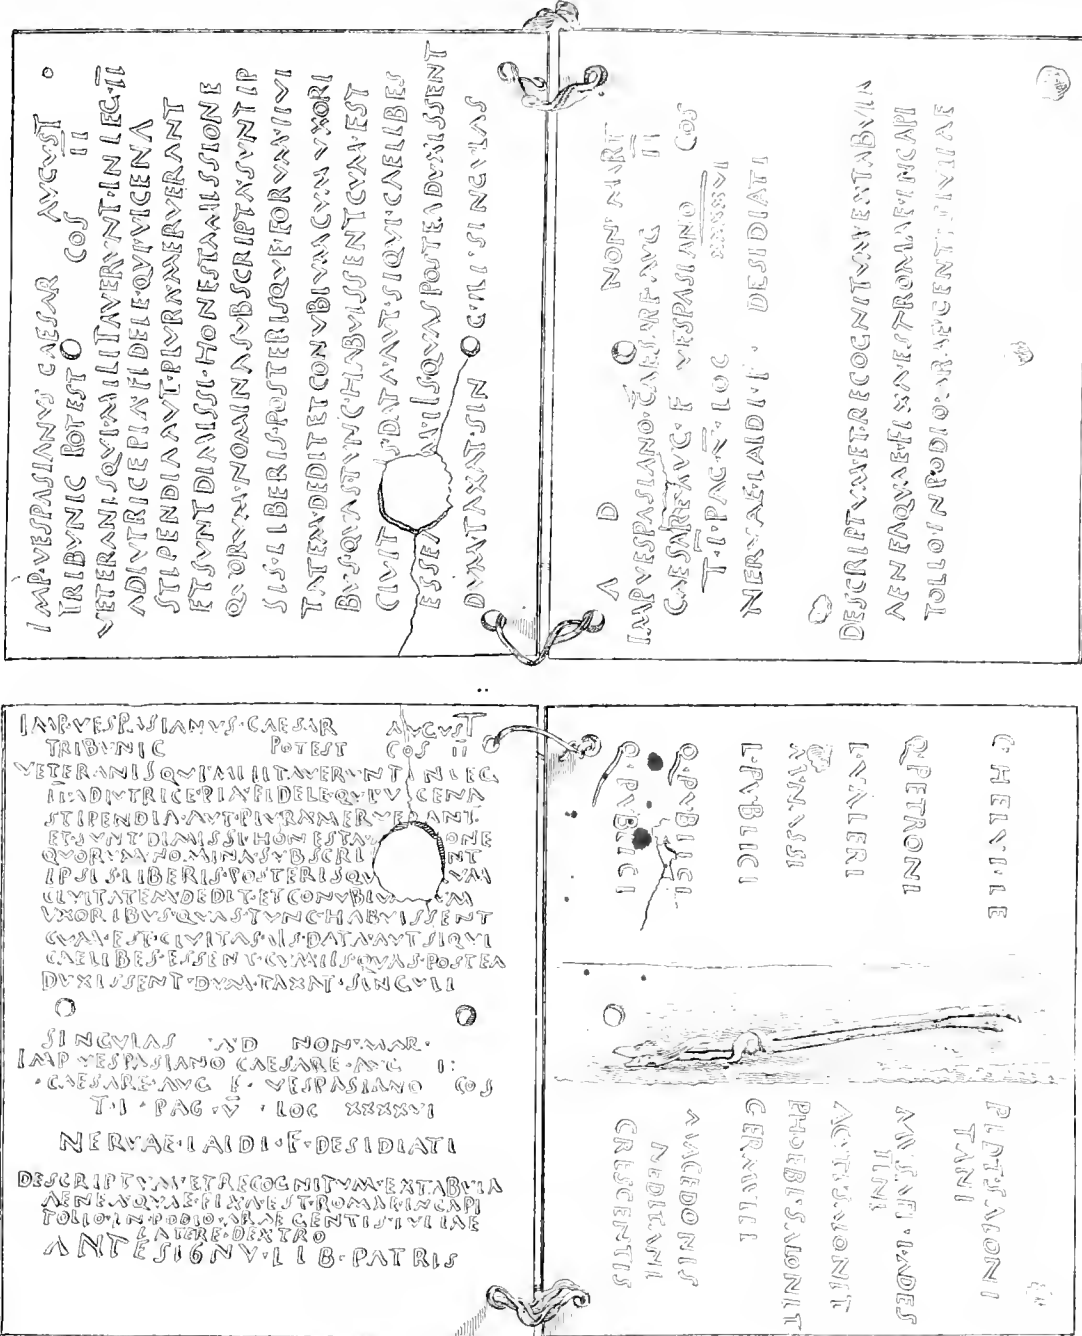 IMP·VESPASIANVS·CAESAR AVGVST
TRIBVNIC POTEST COS II
VETERANIS·QVI·MILITAVERVNT·IN LEG·II
ADIVTRICE PIA·FIDELE·QVI·VICENA
STIPENDIA AVT·PLVRA·MERVERANT
ET SVNT DIMISSI·HONESTA MISSIONE
QVORVM·NOMINA SVBSCRIPTA SVNT IP
SIS·LIBERIS·POSTERISQVE·EORVM CIVI
TATEM·DEDIT ET CONVBIVM CVM VXORI
BVS·QVAS·TVNC·HABVISSENT CVM·EST
CIVIT S·DATA·AVT·SIQVI·CAELIBES
ESSE M·IIS·QVAS POSTEA DVXISSENT
DVM·TAXAT·SIN GVLI·SINGVLAS
A D NON·MART
IMP VESPASIANO·CAESARE·AVG II
CAESARE AVG·F VESPASIANO COS
T·I·PAG·V·LOC XXXXVI
NERVAE·LAIDI·F· DESIDIATI
DESCRIPTVM·ET RECOGNITVM EX TABVLA
AENEA QVAE·FIXA·EST ROMAE·IN CAPI
TOLIO·IN PODIO·ARAE·GENTIS IVLIAE
IMP·VESPASIANVS·CAESAR AVGVST
TRIBVNIC POTEST COS II
VETERANIS QVI·MILITAVERVNT IN LEG
II·ADIVTRICE·PIA·FIDELE·QVI VICENA
STIPENDIA·AVT·PLVRA MERVERANT·
ET·SVNT DIMISSI·HONESTA ONE
QVORVM·NOMINA·SVBSCRI NT
IPSIS·LIBERIS·POSTERISQV VM
CIVITATEM·DEDIT·ET CONVBIV M
VXORIBVS·QVAS·TVNC·HABVISSENT
CVM·EST·CIVITAS·IIS·DATA·AVT SIQVI
CAELIBES·ESSENT·CVM IIS·QVAS·POSTEA
DVXISSENT·DVM·TAXAT·SINGVLI
SINGVLAS A·D NON·MAR·
IMP VESPASIANO CAESARE·AVG II
·CAESARE·AVG F· VESPASIANO COS
T·I·PAG·V·LOC XXXXVI
NERVAE·LAIDI·F·DESIDIATI
DESCRIPTVM·ET RECOGNITVM·EX TABVLA
AENEA QVAE·FIXA EST ROMAE IN CAPI
TOLIO·IN·PODIO·ARAE GENTIS·IVLIAE
LATERE·DEXTRO
ANTE SIGNV·LIB·PATRIS
C·HELVI·LE
PIDI·SALONI
TANI
Q·PETRONI
MVSAEI·IADES
TINI
L·VALERI
ACVTI·SALONIT
M·NASSI
PHOEBI·SALONIT
L·PVBLICI
GERMVLLI
Q·PVBLICI
MACEDONIS
NEDITANI
Q·PVBLICI
CRESCENTIS